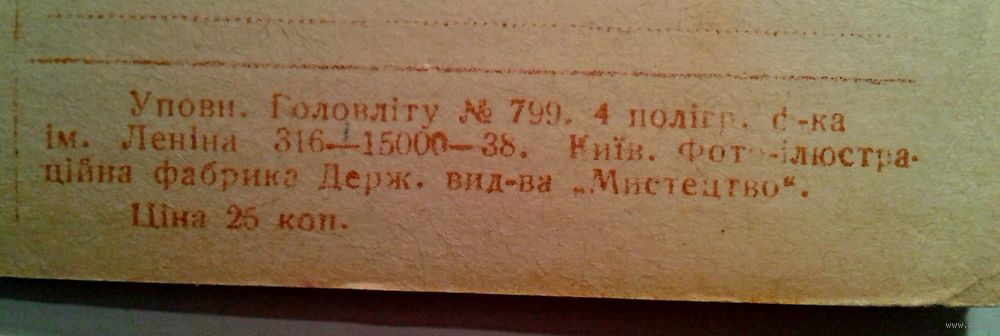 Уповн. Головліту № 799. 4 полігр. ф-ка
ім. Леніна 316—15000—38. Київ. Фото-ілюстра-
ційна фабрика Держ. вид-ва „Мистецтво“.
Ціна 25 коп.